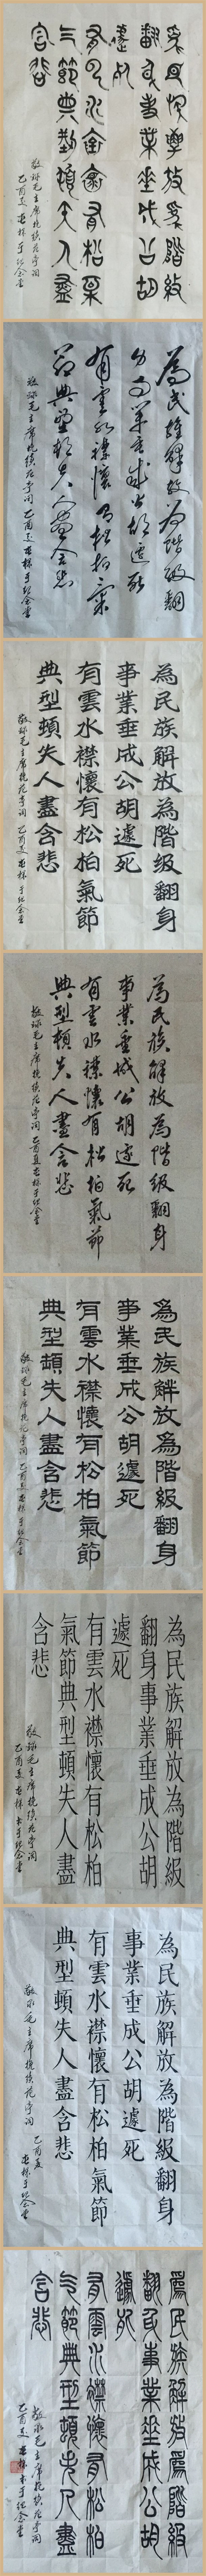 為民族解放為階級
翻身事業垂成公胡
遽死
有雲水襟懷有松柏
氣節典型頓失人盡
含悲
敬録毛主席挽續范亭詞
乙酉夏 于紀念堂
為民族解放為階級翻
身事業垂成公胡遽死
有雲水襟懷有松柏氣
節典型頓失人盡含悲
敬録毛主席挽續范亭詞 乙酉夏 于紀念堂
為民族解放為階級翻身
事業垂成公胡遽死
有雲水襟懷有松柏氣節
典型頓失人盡含悲
敬録毛主席挽續范亭詞 乙酉夏 于紀念堂
為民族解放為階級翻身
事業垂成公胡遽死
有雲水襟懷有松柏氣節
典型頓失人盡含悲
敬録毛主席挽續范亭詞 乙酉夏 于紀念堂
為民族解放為階級翻身
事業垂成公胡遽死
有雲水襟懷有松柏氣節
典型頓失人盡含悲
敬録毛主席挽續范亭詞 乙酉夏 于紀念堂
為民族解放為階級
翻身事業垂成公胡
遽死
有雲水襟懷有松柏
氣節典型頓失人盡
含悲
敬録毛主席挽續范亭詞
乙酉夏 書于紀念堂
為民族解放為階級翻身
事業垂成公胡遽死
有雲水襟懷有松柏氣節
典型頓失人盡含悲
敬录毛主席挽續范亭詞 乙酉夏
于紀念堂
為民族解放為階級
翻身事業垂成公胡
遽死
有雲水襟懷有松柏
氣節典型頓失人盡
含悲
敬录毛主席挽續范亭詞
乙酉夏 書于紀念堂